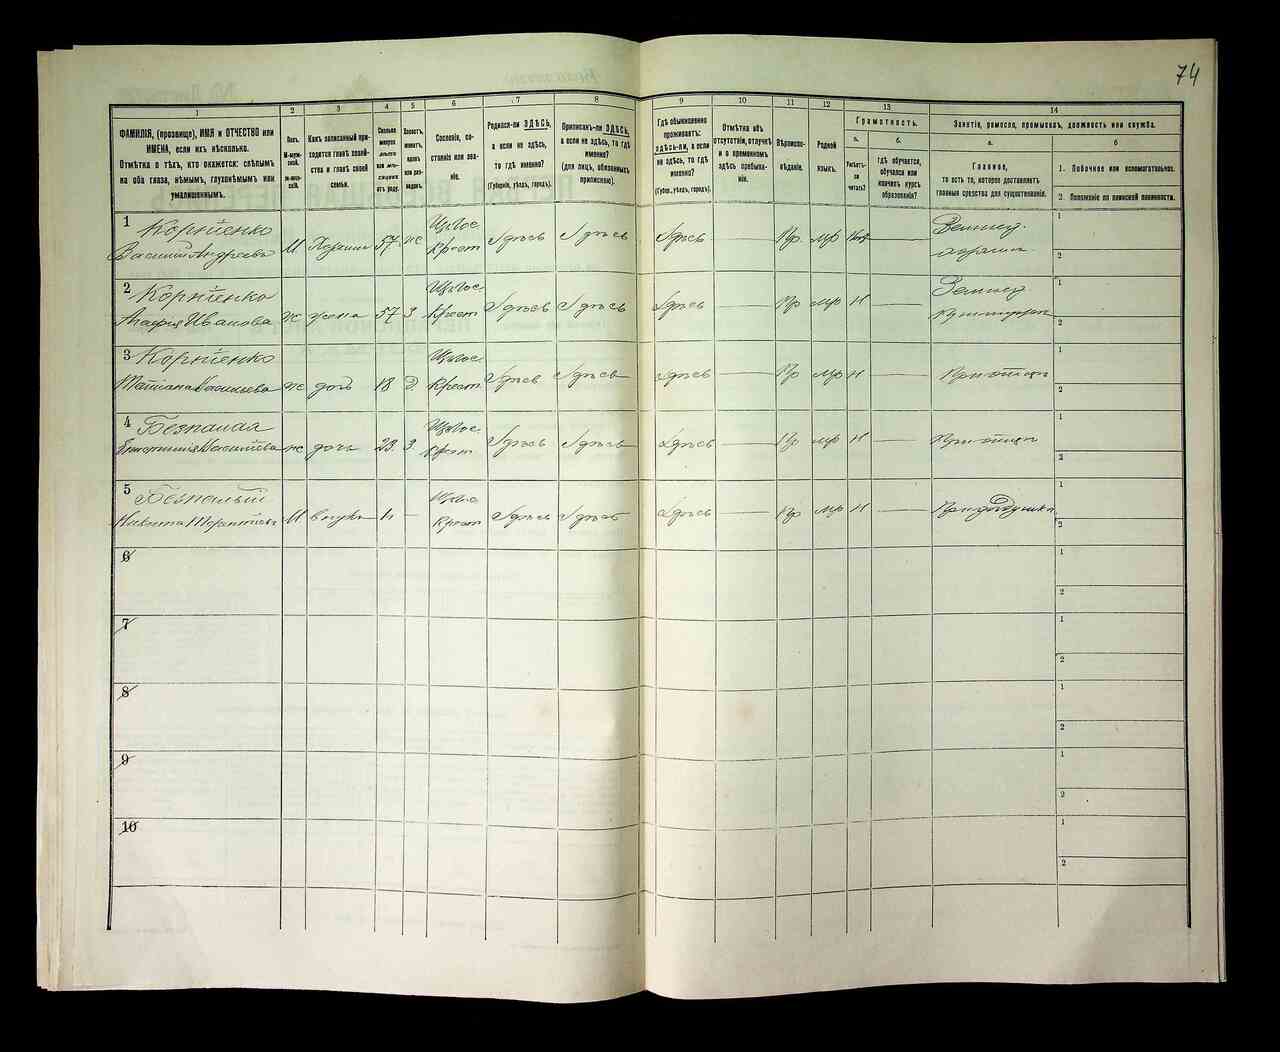 74
1 2 3 4 5 6 7 8 9 10 11 12 13 14
ФАМИЛІЯ, (прозвище), ИМЯ и ОТЧЕСТВО или
ИМЕНА, если ихъ нѣсколько.
Отмѣтка о тѣхъ, кто окажется: слѣпымъ
на оба глаза, нѣмымъ, глухонѣмымъ или
умалишеннымъ.
Полъ.
М-муж-
ской.
Ж-жен-
скій.
Какъ записанный при-
ходится главѣ хозяй-
ства и главѣ своей
семьи.
Сколько
минуло
лѣтъ
или мѣ-
сяцевъ
отъ роду.
Холостъ,
женатъ,
вдовъ
или раз-
веденъ.
Сословіе, со-
стояніе или зва-
ніе.
Родился-ли ЗДѢСЬ,
а если не здѣсь,
то гдѣ именно?
(Губернія, уѣздъ, городъ).
Приписанъ-ли ЗДѢСЬ,
а если не здѣсь, то гдѣ
именно?
(для лицъ, обязанныхъ
припискою).
Гдѣ обыкновенно
проживаетъ:
здѣсь-ли, а если
не здѣсь, то гдѣ
именно?
(Губерн., уѣздъ, городъ).
Отмѣтка объ
отсутствіи, отлучкѣ
и о временномъ
здѣсь пребыва-
ніи.
Вѣроиспо-
вѣданіе.
Родной
языкъ.
Грамотность.
а.
Умѣетъ-
ли
читать?
б.
гдѣ обучается,
обучался или
кончилъ курсъ
образованія?
Занятіе, ремесло, промыселъ, должность или служба.
а.
Главное,
то есть то, которое доставляетъ
главныя средства для существованія.
б
1. Побочное или вспомогательное.
2. Положеніе по воинской повинности.
1 Корніенко Из Гос. 1
Василій Андреевъ М Хозяинъ 57 ж Крест Здѣсь Здѣсь Здѣсь — Пр мр — 2
2 Корніенко Из Гос. 1
Агафія Иванова ж жена 57 З Крест Здѣсь Здѣсь Здѣсь — Пр мр Н — 2
3 Корніенко Из Гос. 1
Татіана Васильева ж дочь 18 Д Крест Здѣсь Здѣсь Здѣсь — Пр мр Н — При отцѣ 2
4 Безпалая Из Гос. 1
Васильева ж дочь 23 З Крест Здѣсь Здѣсь Здѣсь — Пр мр Н — При отцѣ 2
5 Безпалый Из Гос 1
Никита М внукъ — Крест Здѣсь Здѣсь Здѣсь — Пр мр Н — При дѣдушкѣ 2
6 1
2
7 1
2
8 1
2
9 1
2
10 1
2